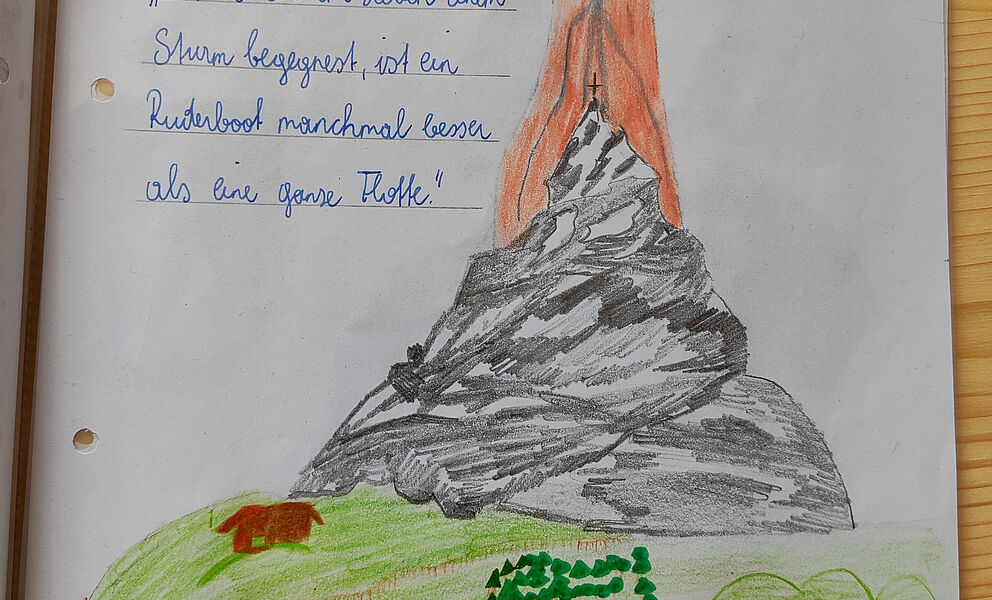 Sturm begegnest, ist ein
Ruderboot manchmal besser
als eine ganze Flotte."